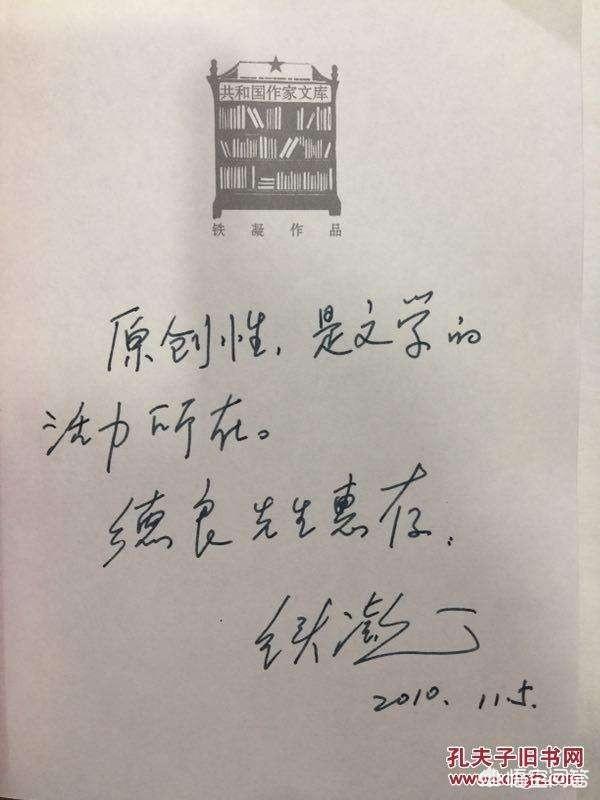 共和国作家文库
铁凝作品
原创性，是文学的
活力所在。
德良先生惠存。
铁凝
2010.11.5.
孔夫子旧书网
悟空问答